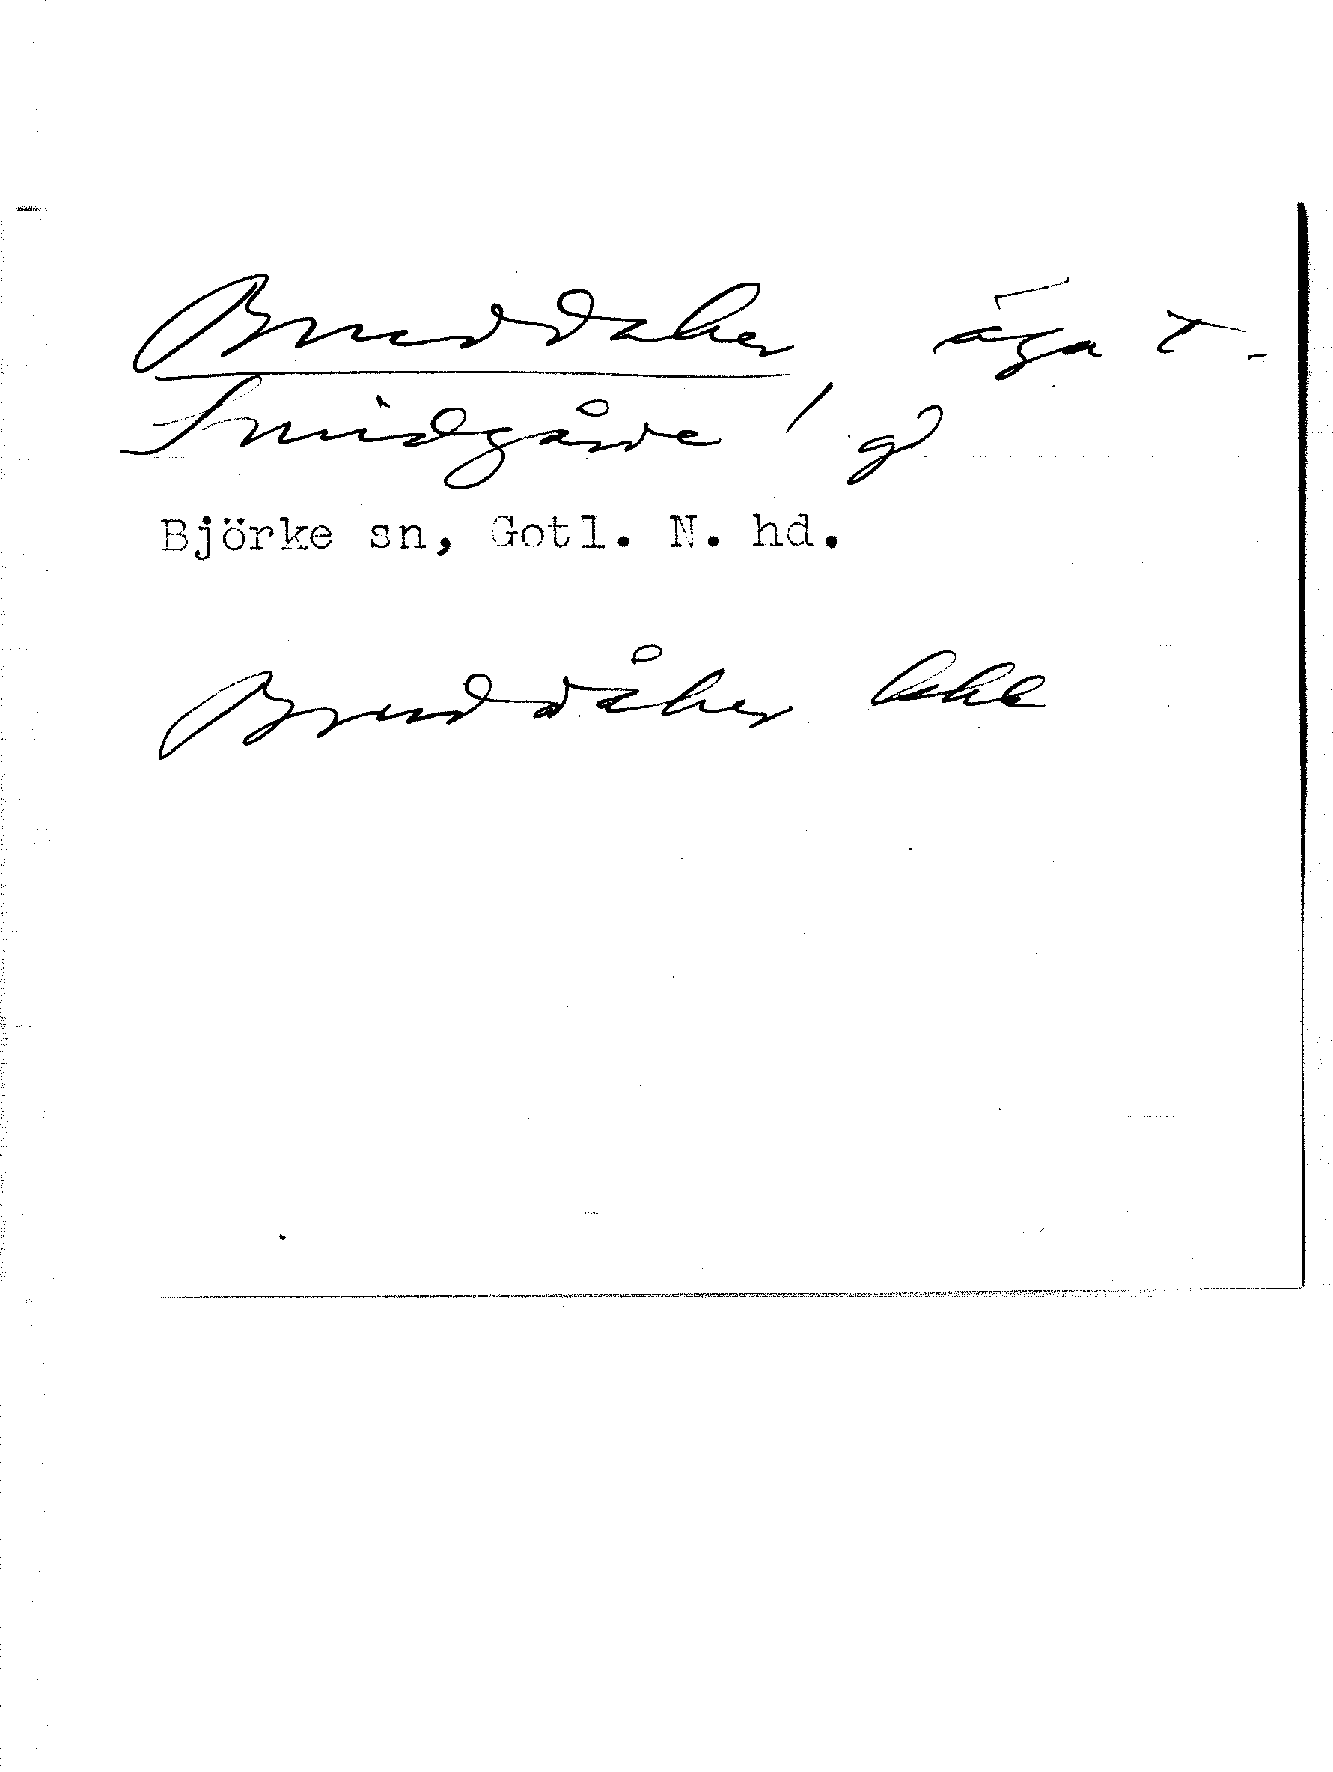 Bruddaker, äga t.
Smidgårde 1 g
Björke sn, Gotl. N. hd.
Bruddåker